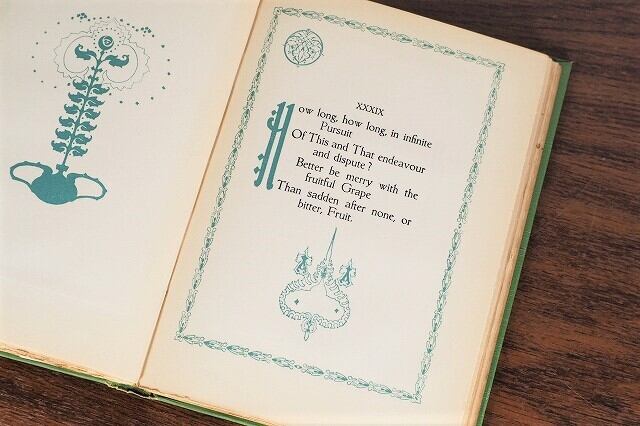 XXXIX
How long, how long, in infinite
Pursuit
Of This and That endeavour
and dispute?
Better be merry with the
fruitful Grape
Than sadden after none, or
bitter, Fruit.